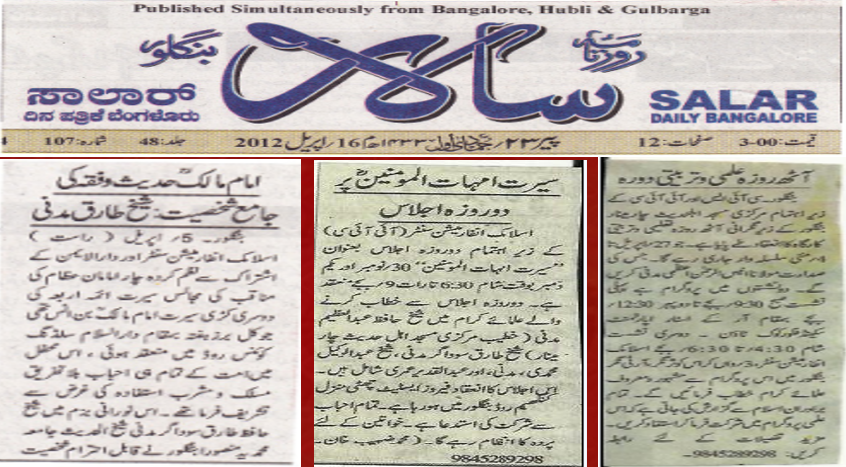 Published Simultaneously from Bangalore, Hubli & Gulbarga
روزنامہ سالار بنگلور
ಸಾಲಾರ್
ದಿನ ಪತ್ರಿಕೆ ಬೆಂಗಳೂರು
SALAR
DAILY BANGALORE
قیمت: 3-00 صفحات: 12 پیر ۲۳؍ جمادی الاول ۱۴۳۳ھ م 16؍ اپریل 2012 جلد: 48 شمارہ: 107
آٹھ روزہ علمی و تربیتی دورہ
بنگلور۔ سی آئی ایس اور آئی آئی سی کے
زیر اہتمام مرکزی مسجد اہلحدیث چارمینار
بنگلور کے زیر نگرانی آٹھ روزہ تعلیمی و تربیتی
کارگاہ کا انعقاد طے پایا ہے۔ جو 27؍ اپریل تا
4؍ مئی سلسلہ وار جاری رہے گا۔ جس کی
صدارت مولانا انیس الرحمن اعظمی مدنی کریں
گے۔ دو نشستوں میں پروگرام ہے پہلی
نشست صبح 9:30 بجے تا دوپہر 12:30
بجے بمقام آر کے
دوسری نشست
شام 4:30 تا 6:30 بجے اسلامک
انفارمیشن سنٹر
بنگلور میں اس پروگرام سے مشہور و معروف
علمائے کرام خطاب فرمائیں گے۔ تمام
برادران اسلام سے گزارش کی جاتی ہے کہ اس
علمی پروگرام میں شرکت فرما کر استفادہ کریں۔
مزید تفصیلات کے لئے رابطہ
کریں: 9845289298
سیرت امہات المومنینؓ پر
دو روزہ اجلاس
اسلامک انفارمیشن سنٹر (آئی آئی سی)
کے زیر اہتمام دو روزہ اجلاس بعنوان
”سیرت امہات المومنین“ 30؍ نومبر اور یکم
دسمبر بوقت شام 6:30 تا رات 9 بجے منعقد
ہے۔ دو روزہ اجلاس سے خطاب کرنے
والے علمائے کرام میں شیخ حافظ عبدالعظیم
مدنی (خطیب مرکزی مسجد اہل حدیث چار
مینار) شیخ طارق سوداگر مدنی، شیخ عبدالوکیل
محمدی، مدنی، اور عبدالقدیر عمری شامل ہیں۔
اس اجلاس کا انعقاد فیروز ایسٹیٹ چھٹی منزل
کننگھم روڈ بنگلور میں ہو رہا ہے۔ تمام احباب
سے شرکت کی استدعا ہے۔ خواتین کے لئے
پردہ کا انتظام رہے گا۔ (محمد صہیب خان۔
9845289298
امام مالکؒ حدیث و فقہ کی
جامع شخصیت: شیخ طارق مدنی
بنگلور۔ 5؍ اپریل (راست)
اسلامک انفارمیشن سنٹر اور دار الایمن کے
اشتراک سے نظم کردہ چار امامان عظام کی
مناقب کی مجالس سیرت ائمہ اربعہ کی
دوسری کڑی سیرت امام مالک بن انسؒ تھی
جو کل بروز ہفتہ بمقام دارالسلام بلڈنگ
کوئنس روڈ میں منعقد ہوئی، اس محفل
میں امت کے تمام ہی احباب بلا تفریق
مسلک و مشرب استفادہ کی غرض سے
تشریف فرما تھے۔ اس نورانی بزم میں شیخ
حافظ طارق سوداگر مدنی شیخ الحدیث جامعہ
محمدیہ منصورا بنگلور نے قابل احترام شخصیت